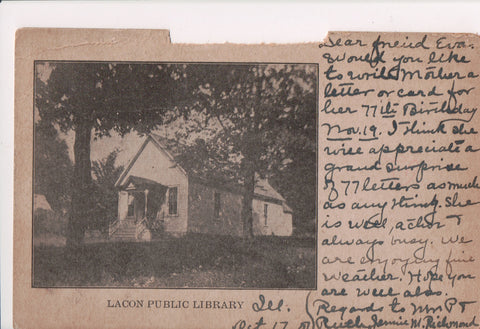 Dear friend Eva.
Would you like
to write Mother a
letter or card for
her 77th Birthday
Nov. 19. I think she
will appreciate a
grand surprise
of 77 letters as much
as anything. She
is well, &
always busy. We
are enjoying fine
weather. Hope you
are well also.
Regards to Mr P &
Ruth, Jennie W. Richmond
LACON PUBLIC LIBRARY Ill.
Oct 17